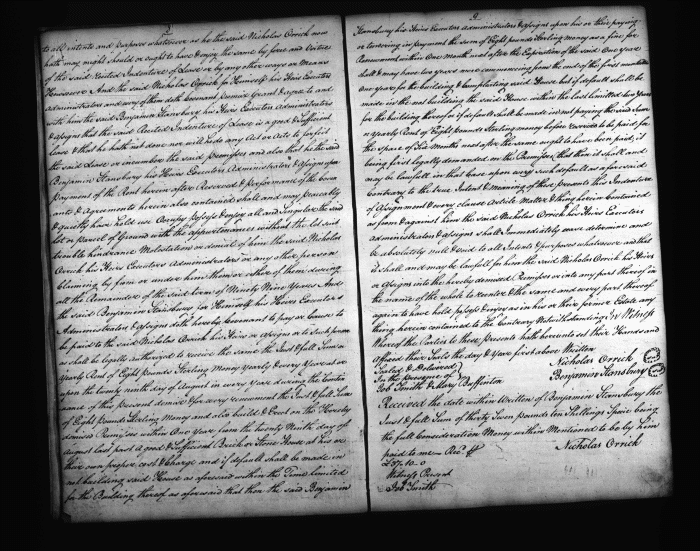 to all intents and purposes whatsoever as he the said Nicholas Orrick now
hath may might should or ought to have & enjoy the same by force and virtue
of the said Recited Indenture of Lease or by any other ways or Means
Howsoever And the said Nicholas Orrick for Himself his Heirs Executors
Administrators and every of them doth Covenant promise Grant & agree to and
with him the said Benjamin Stansbury his Heirs Executors Administrators
& assigns that the said Recited Indenture of Lease is a good & sufficient
lease & that he hath not done nor will do any Act or Acts to forfeit
the said Lease or incumber the said premises and also that he the said
Benjamin Stansbury his Heirs Executors Administrators & assigns upon
payment of the Rent herein after Reserved & performance of the Coven
ants & Agreements herein also contained shall and may peaceably
& quietly have hold use Occupy possess & enjoy all and singular the said
lot or parcel of Ground with the appurtenances without the let suit
trouble hindrance Molestation or denial of him the said Nicholas
Orrick his Heirs Executors Administrators or any other person
claiming by from or under him them or either of them during
all the Remainder of the said term of Ninety Nine Years And
the said Benjamin Stansbury for Himself his Heirs Executors
Administrators & assigns doth hereby Covenant to pay or cause to
be paid to the said Nicholas Orrick his Heirs or assigns or to such person
as shall be legally authorized to receive the same the Just & full Sum or
Yearly Rent of Eight pounds Sterling Money Yearly & every Year at or
upon the twenty ninth day of August in every Year during the Contin
uance of this present demise & for every renewment the Just & full Sum
of Eight pounds Sterling Money and also build & Erect on the Hereby
demised Premises within One Year from the twenty Ninth day of
August Last past a good & Sufficient Brick or Stone House at his or
their own proper cost & Charge and if default shall be made in
not building said House as aforesaid within the Time Limited
for the Building thereof as aforesaid that then the said Benjamin
2
Stansbury his Heirs Executors Administrators & assigns upon his or their paying
or tendering in payment the sum of Eight pounds Sterling Money as a fine for
Commencement within One Month next after the Expiration of the said One Year
shall & may have two years more commencing from the end of the first mentioned
One Year for the building & Compleating said House but if default shall be
made in the not building the said House within the last limitted two Years
for the building thereof or if default shall be made in not paying the said Sum
or Yearly Rent of Eight pounds Sterling money before reserved to be paid for
the Space of Six Months next after the same ought to have been paid it
being first legally demanded on the Premises that then it shall and
may be lawfull in that Case upon every such default as aforesaid
Contrary to the true Intent & meaning of these presents this Indenture
of Assignment & every clause article Matter & thing herein Contained
as from & against him the said Nicholas Orrick his Heirs Executors
Administrators & assigns shall Immediately cease determine and
be absolutely null & void to all Intents & purposes whatsoever and that
it shall and may be lawfull for him the said Nicholas Orrick his Heirs
or assigns into the hereby demised Premises or into any part thereof in
the name of the whole to reenter & the same and every part thereof
again to have hold possess & enjoy as in his or their former Estate any
thing herein contained to the Contrary Notwithstanding In Witness
Whereof the Parties to these presents hath hereunto set their Hands and
affixed their Seals the day & Year first above Written
Sealed & Delivered
In the presence of
Job Smith & Mary
Nicholas Orrick
Benjamin Stansbury
Received the date within Written of Benjamin Stansbury the
Just & full Sum of thirty Seven pounds ten Shillings Specie being
the full Consideration Money within Mentioned to be by him
paid to me
£37..10..0
Nicholas Orrick
Witness Present
Job Smith